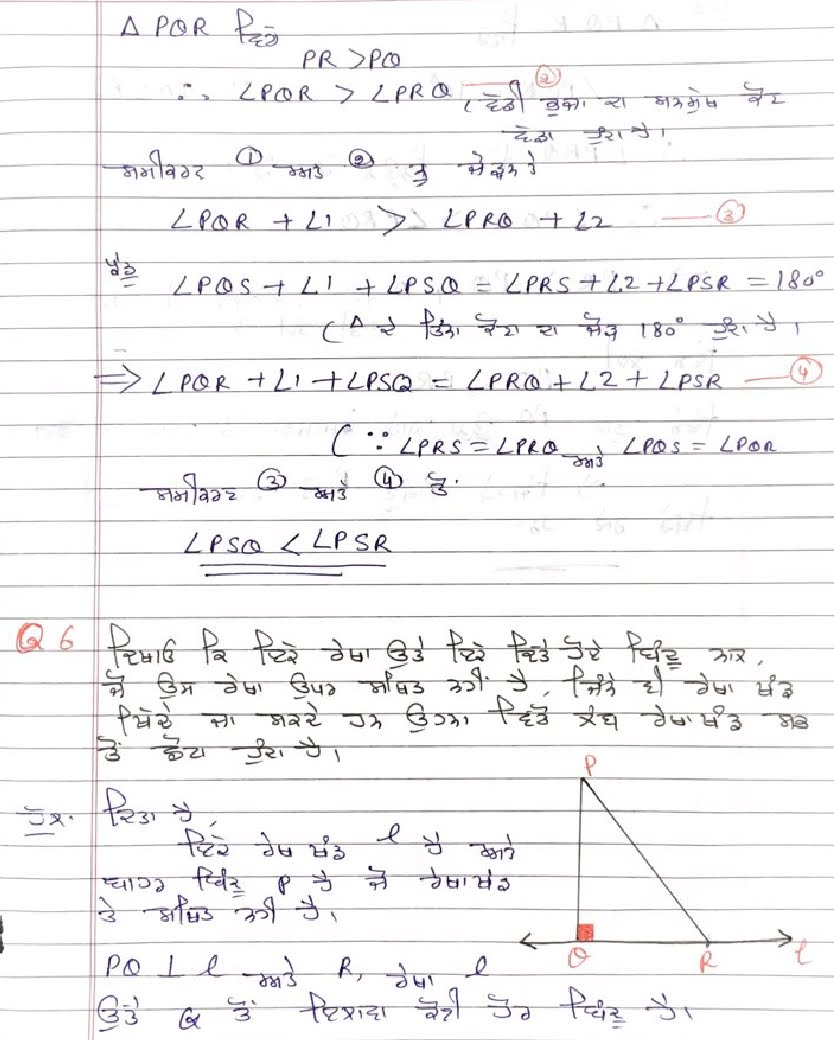 Δ PQR ਵਿੱਚ
PR > PQ
∴ ∠PQR > ∠PRQ ② (ਵੱਡੀ ਭੁਜਾ ਦਾ ਸਨਮੁੱਖ ਕੋਣ
ਵੱਡਾ ਹੁੰਦਾ ਹੈ।
ਸਮੀਕਰਣ ① ਅਤੇ ② ਨੂੰ ਜੋੜਨ ਤੇ
∠PQR + ∠1 > ∠PRQ + ∠2 ③
∠PQS + ∠1 + ∠PSQ = ∠PRS + ∠2 + ∠PSR = 180°
(Δ ਦੇ ਤਿੰਨਾ ਕੋਣਾ ਦਾ ਜੋੜ 180° ਹੁੰਦਾ ਹੈ।
⇒ ∠PQR + ∠1 + ∠PSQ = ∠PRQ + ∠2 + ∠PSR ④
(∵ ∠PRS = ∠PRQ ਅਤੇ ∠PQS = ∠PQR
ਸਮੀਕਰਣ ③ ਅਤੇ ④ ਤੋਂ
∠PSQ < ∠PSR
Q 6 ਦਿਖਾਓ ਕਿ ਦਿੱਤੇ ਰੇਖਾ ਉੱਤੇ ਦਿੱਤੇ ਹੋਏ ਬਿੰਦੂ ਨਾਲ,
ਜੋ ਉਸ ਰੇਖਾ ਉਪਰ ਸਥਿਤ ਨਹੀਂ ਹੈ, ਜਿੰਨੇ ਵੀ ਰੇਖਾ ਖੰਡ
ਖਿੱਚੇ ਜਾ ਸਕਦੇ ਹਨ ਉਹਨਾ ਵਿੱਚੋਂ ਲੰਬ ਰੇਖਾ ਖੰਡ ਸਭ
ਤੋਂ ਛੋਟਾ ਹੁੰਦਾ ਹੈ।
ਹੱਲ. ਦਿੱਤਾ ਹੈ,
ਦਿੱਤੇ ਰੇਖਾ ਖੰਡ l ਹੈ ਅਤੇ
ਬਾਹਰ ਬਿੰਦੂ P ਹੈ ਜੋ ਰੇਖਾ ਖੰਡ
ਤੇ ਸਥਿਤ ਨਹੀ ਹੈ।
PQ ⊥ l ਅਤੇ R, ਰੇਖਾ l
ਉੱਤੇ Q ਤੋਂ ਇਲਾਵਾ ਕੋਈ ਹੋਰ ਬਿੰਦੂ ਹੈ।
P
Q R l